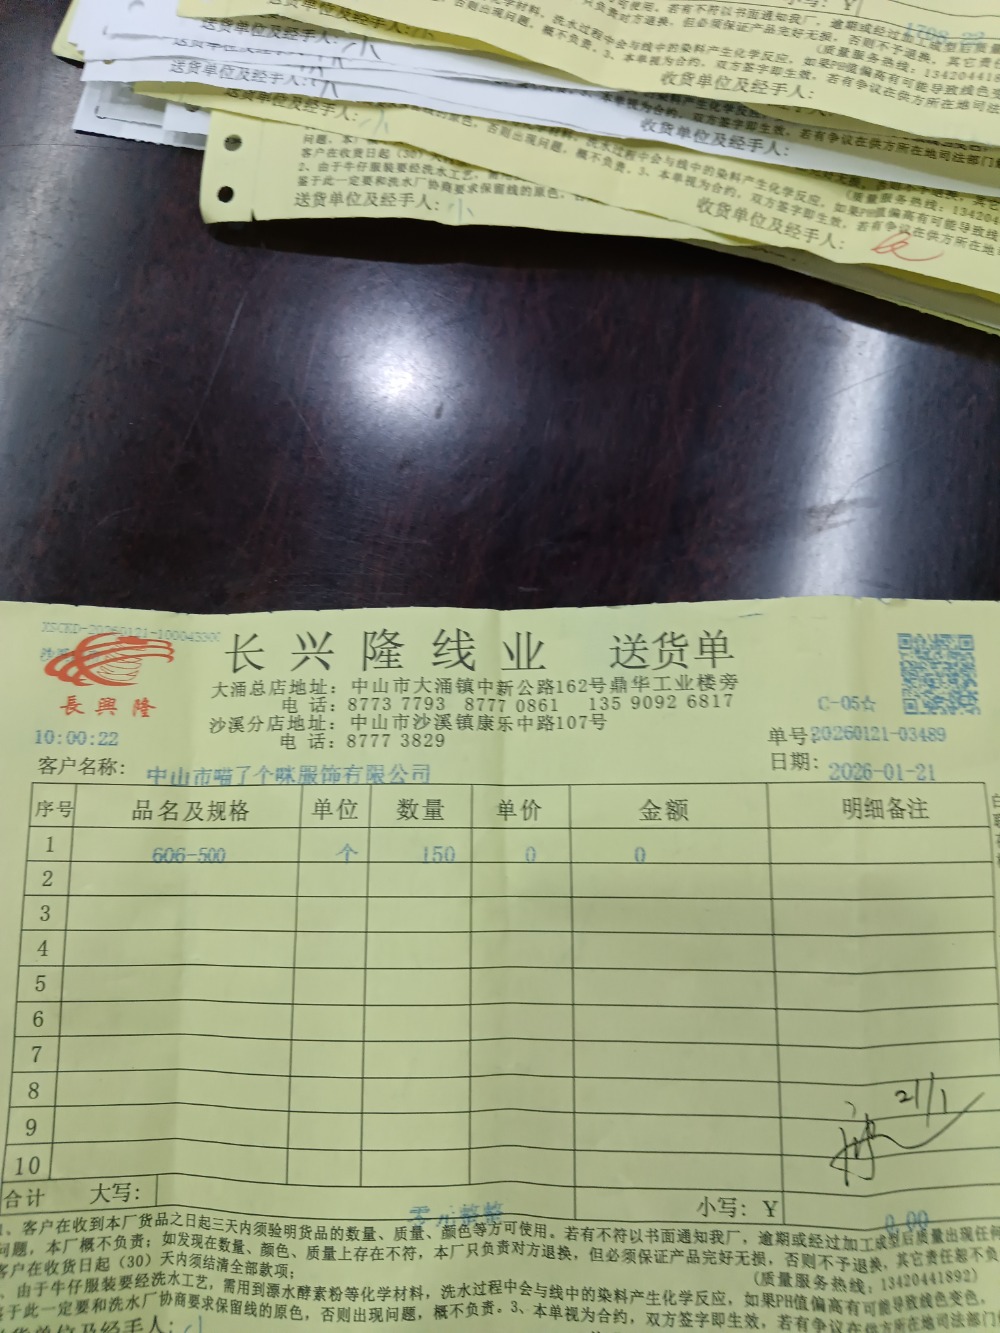 小写：￥
只负责对方退换，但必须保证产品完好无损，否则不予退换，其它责任
(质量服务热线：134204418
送货单位及经手人：
收货单位及经手人：
3、本单视为合约，双方签字即生效，若有争议在供方所在地司法部门
送货单位及经手人：
收货单位及经手人：
客户在收货日起（30）
2、由于牛仔服装要经洗水工艺，
鉴于此一定要和洗水厂协商要求保留线的原色，
送货单位及经手人：
收货单位及经手人：
长兴隆线业 送货单
長興隆
大涌总店地址：中山市大涌镇中新公路162号鼎华工业楼旁
电 话：8773 7793 8777 0861 135 9092 6817
沙溪分店地址：中山市沙溪镇康乐中路107号
电 话：8777 3829
C-05☆
10:00:22
单号：20260121-03489
客户名称：中山市喵了个咪服饰有限公司
日期：2026-01-21
序号 品名及规格 单位 数量 单价 金额 明细备注
1 606-500 个 150 0 0
2
3
4
5
6
7
8
9
10
21/1
合计 大写： 零元整 小写：￥ 0.00
1、客户在收到本厂货品之日起三天内须验明货品的数量、质量、颜色等方可使用。若有不符以书面通知我厂，逾期或经过加工成型后质量出现任何
问题，本厂概不负责；如发现在数量、颜色、质量上存在不符，本厂只负责对方退换，但必须保证产品完好无损，否则不予退换，其它责任恕不负
客户在收货日起（30）天内须结清全部款项；
(质量服务热线：13420441892)
、由于牛仔服装要经洗水工艺，需用到漂水酵素粉等化学材料，洗水过程中会与线中的染料产生化学反应，如果PH值偏高有可能导致线色变色，
鉴于此一定要和洗水厂协商要求保留线的原色，否则出现问题，概不负责。3、本单视为合约，双方签字即生效，若有争议在供方所在地司法部门
送货单位及经手人：